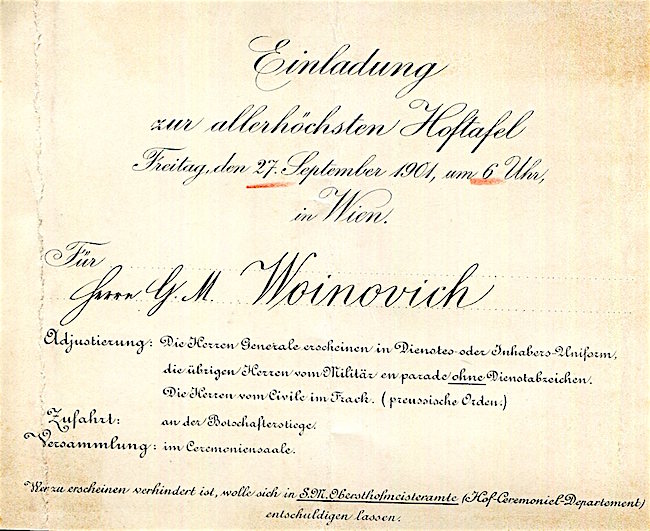 Einladung
zur allerhöchsten Hoftafel
Freitag, den 27. September 1901, um 6 Uhr,
in Wien.
Für
Herrn G. M. Woinovich
Adjustierung: Die Herren Generale erscheinen in Dienstes- oder Inhabers-Uniform,
die übrigen Herren vom Militär en parade ohne Dienstabzeichen.
Die Herren vom Civile im Frack. (preussische Orden.)
Zufahrt: an der Botschafterstiege.
Versammlung: im Ceremoniensaale.
Wer zu erscheinen verhindert ist, wolle sich in S. M. Obersthofmeisteramte (Hof-Ceremoniel-Departement)
entschuldigen lassen.